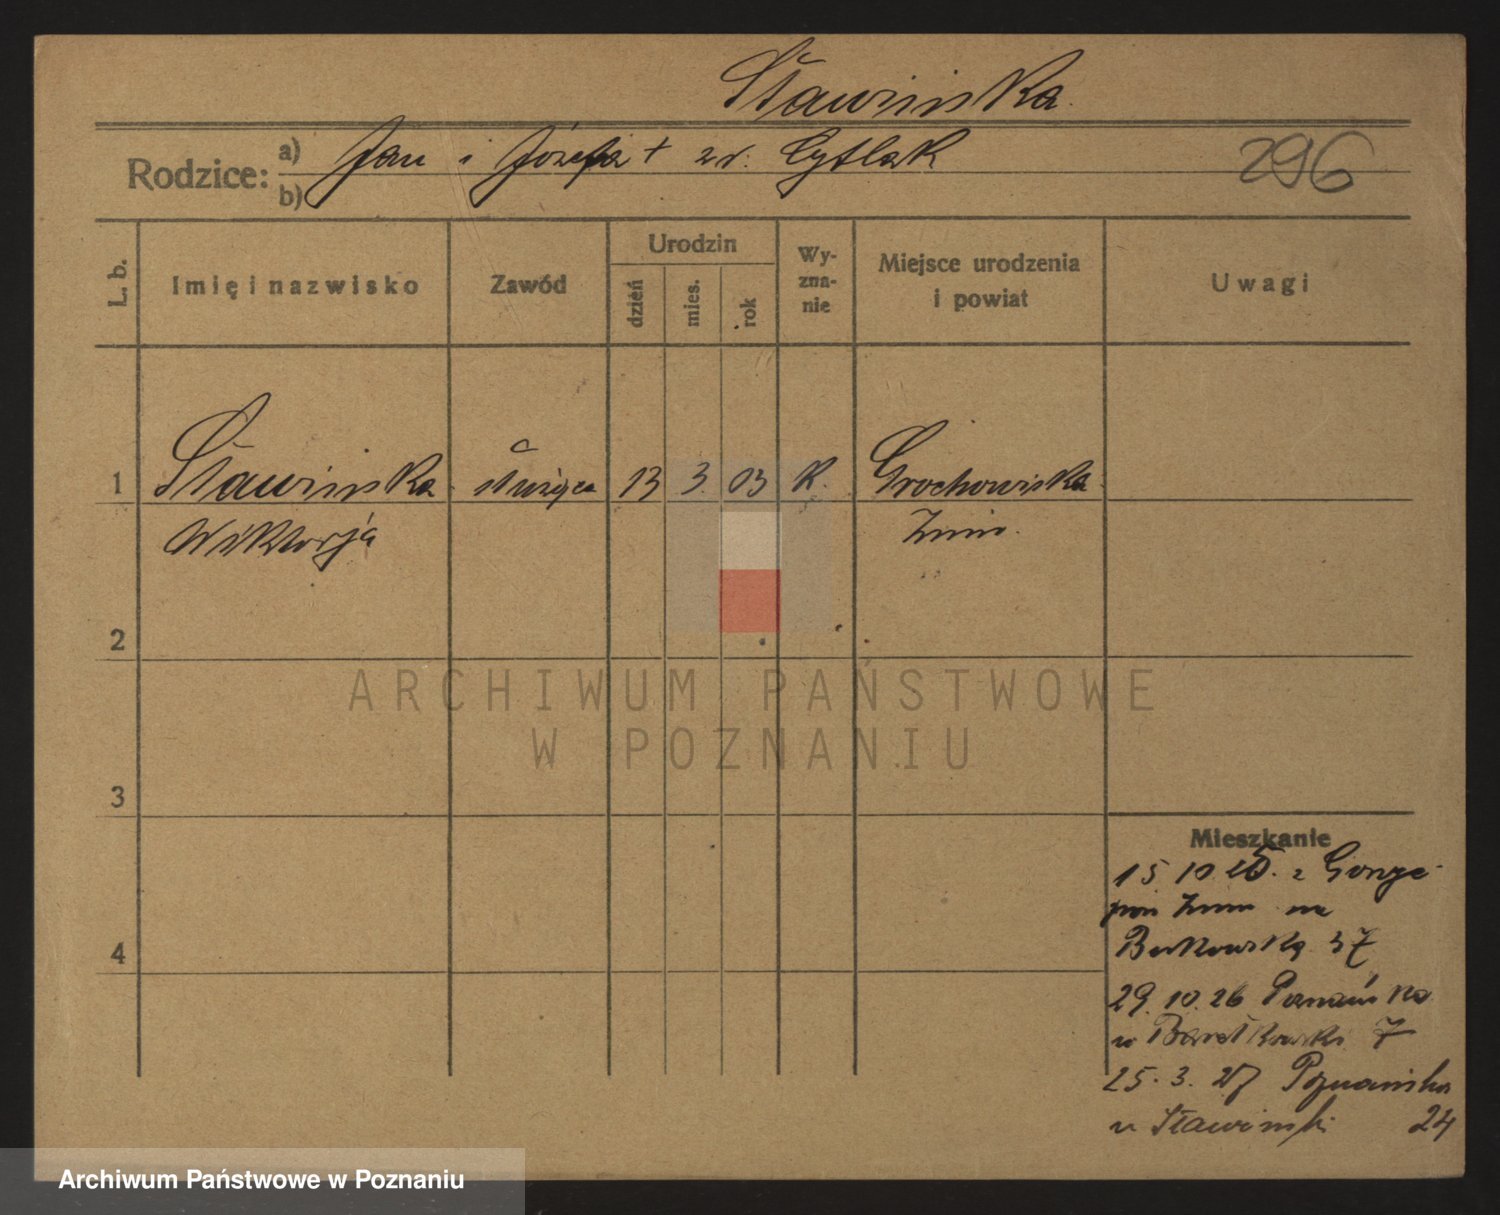 Sławińska
Rodzice: a) Jan i Józefa + zd. Cytlak
b)
296
L. b.
Imię i nazwisko
Zawód
Urodzin
dzień
mies.
rok
Wy-
zna-
nie
Miejsce urodzenia
i powiat
Uwagi
1 Sławińska służąca 13 3. 03 K. Grochowiska
Wiktorja Żnin.
2
3
4
ARCHIWUM PAŃSTWOWE
W POZNANIU
Mieszkanie
15 10 25. z
pow Żnin na
37
29. 10. 26 Poznańska
u 7
25. 3. 27 Poznańska
u Sławiński 24
Archiwum Państwowe w Poznaniu